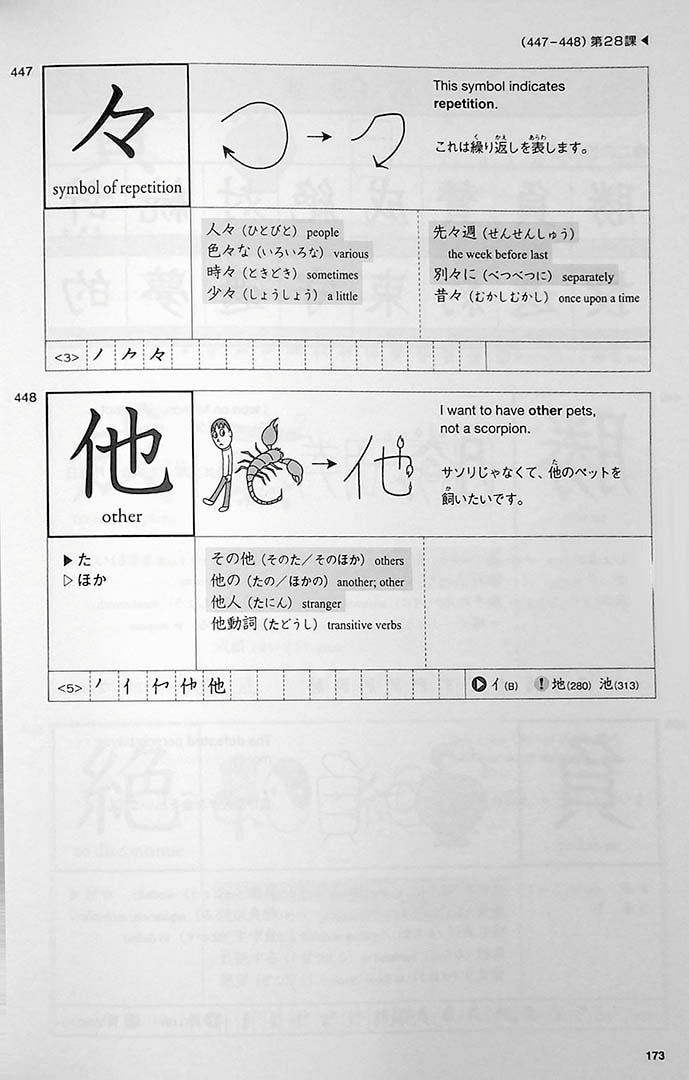 (447–448) 第28課◀
447
々
symbol of repetition
This symbol indicates
repetition.
これは繰り返しを表します。
く かえ あらわ
人々（ひとびと）people
色々な（いろいろな）various
時々（ときどき）sometimes
少々（しょうしょう）a little
先々週（せんせんしゅう）
the week before last
別々に（べつべつに）separately
昔々（むかしむかし）once upon a time
<3>
448
他
other
I want to have other pets,
not a scorpion.
サソリじゃなくて、他のペットを
た
飼いたいです。
か
▶た
▷ほか
その他（そのた／そのほか）others
他の（たの／ほかの）another; other
他人（たにん）stranger
他動詞（たどうし）transitive verbs
<5>
イ(B) ! 地(280) 池(313)
173